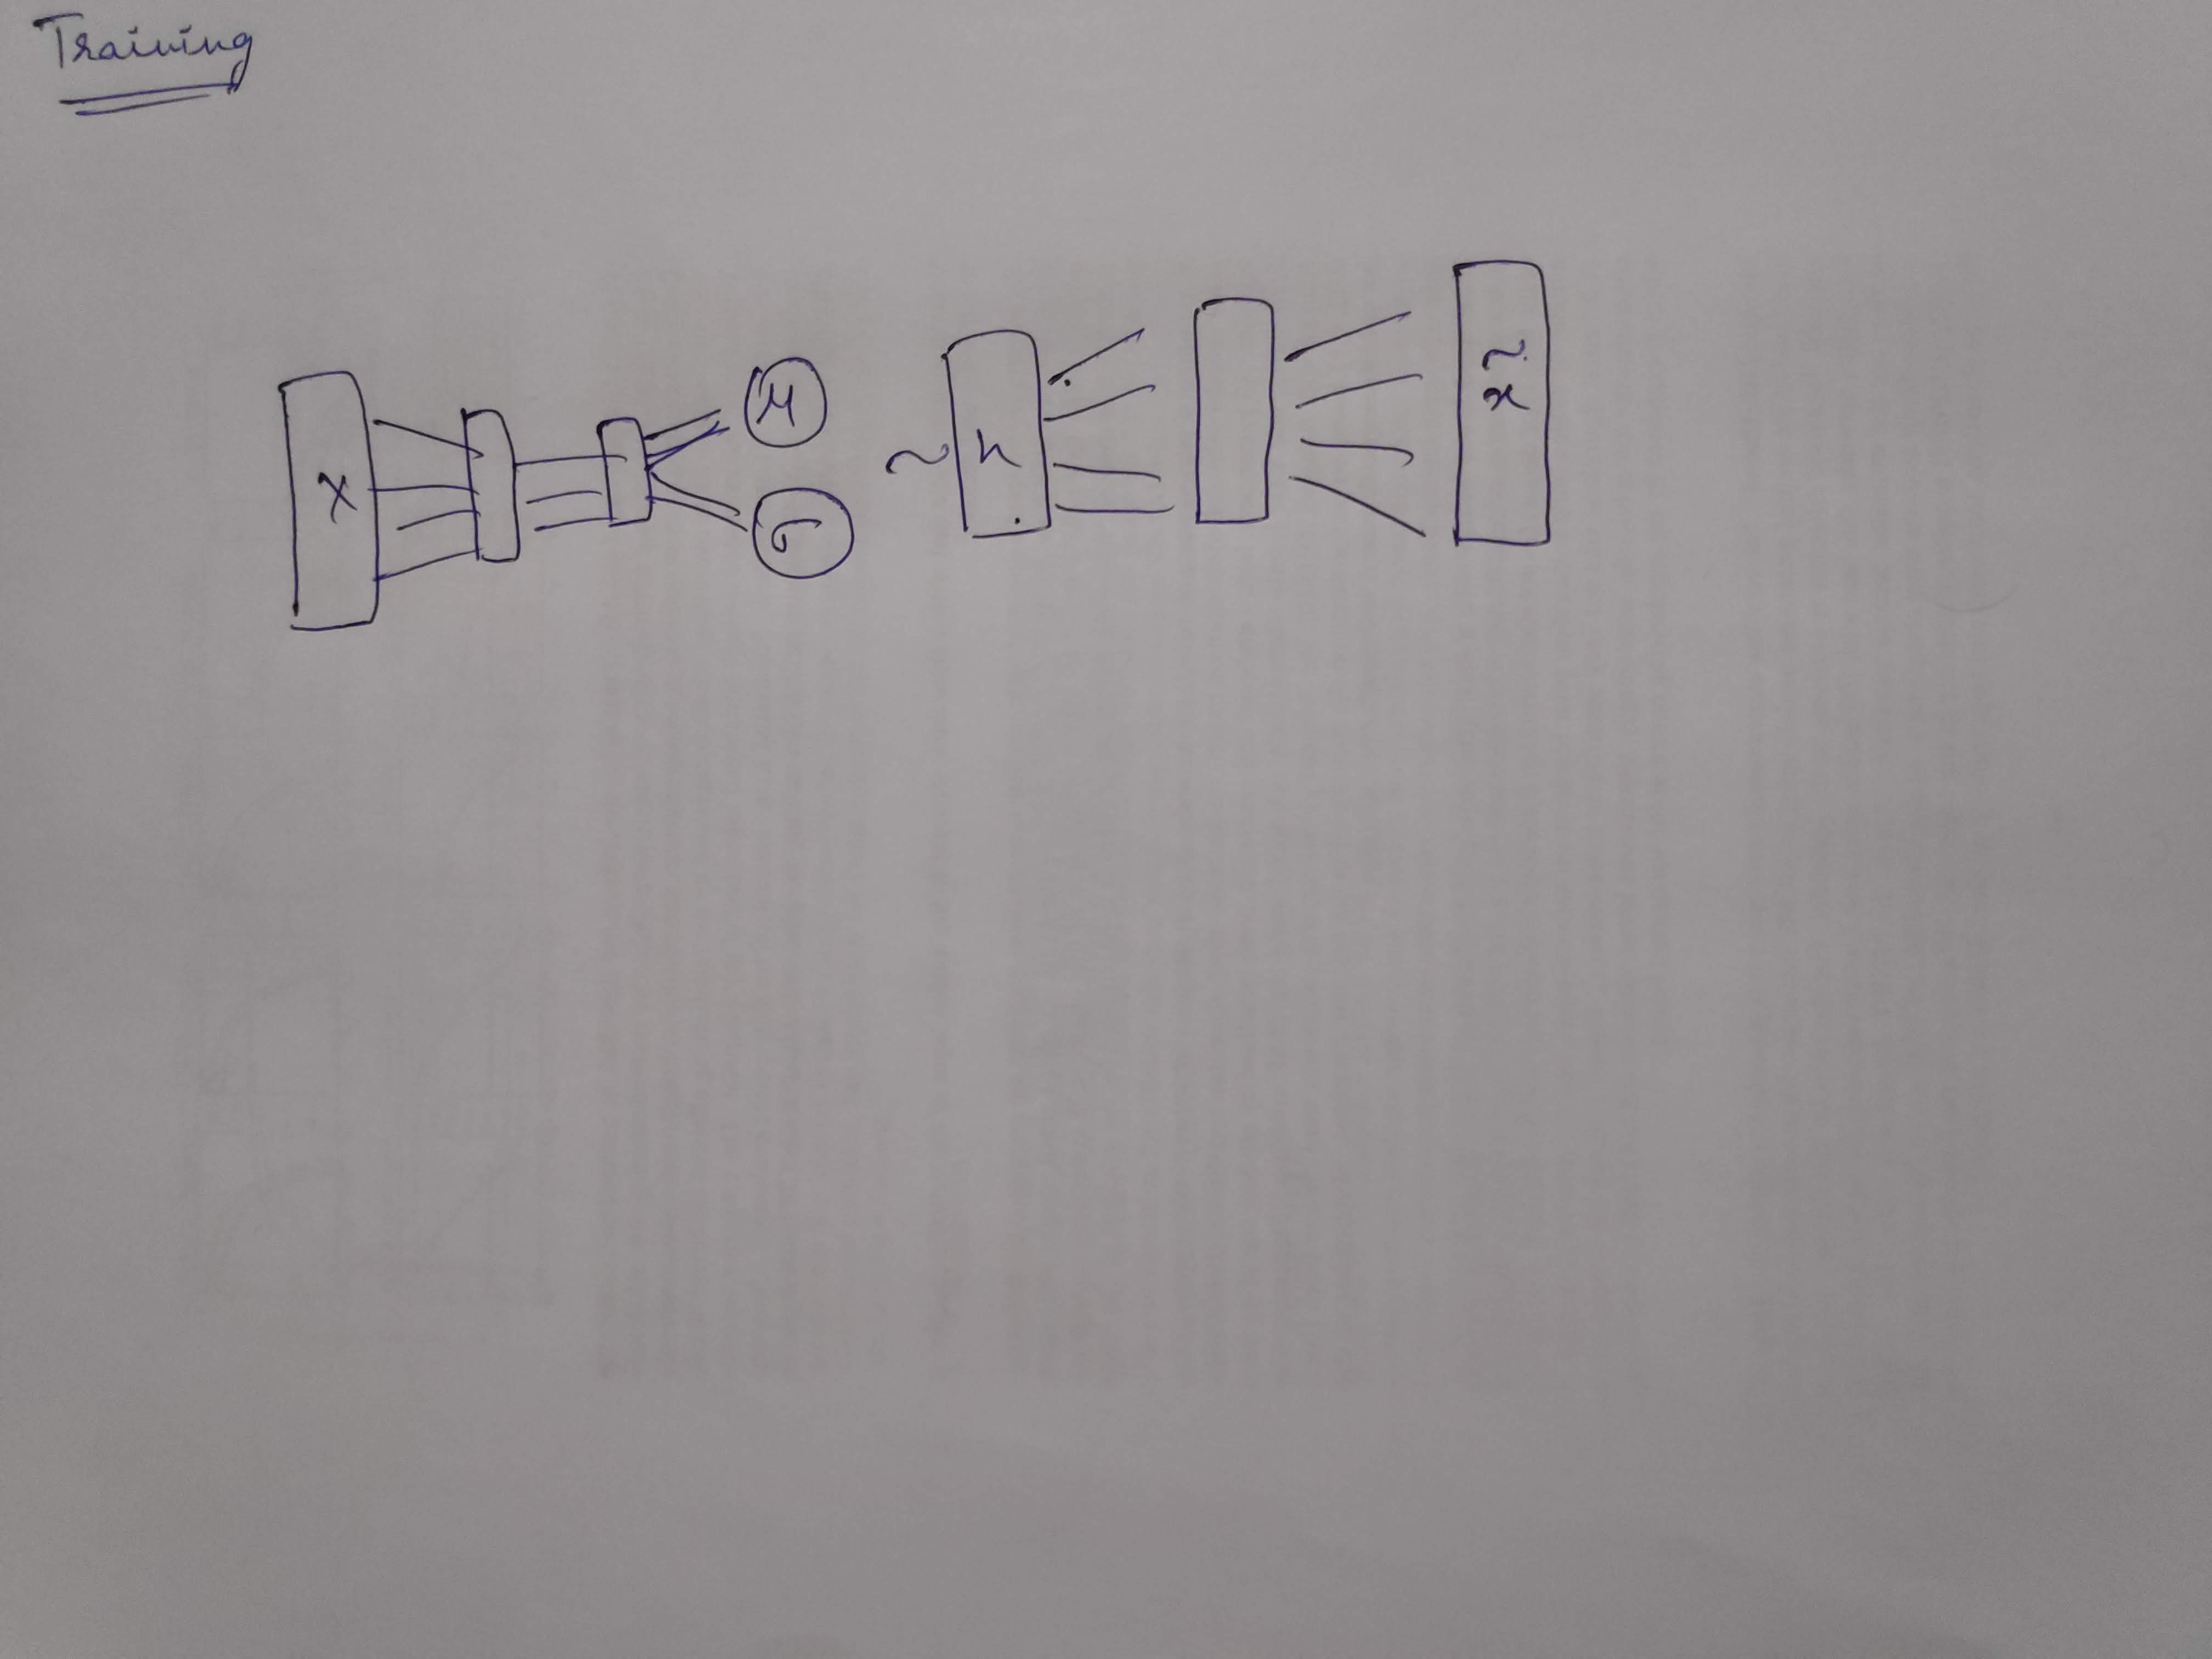 Training
x
μ
σ
~
h
x̃